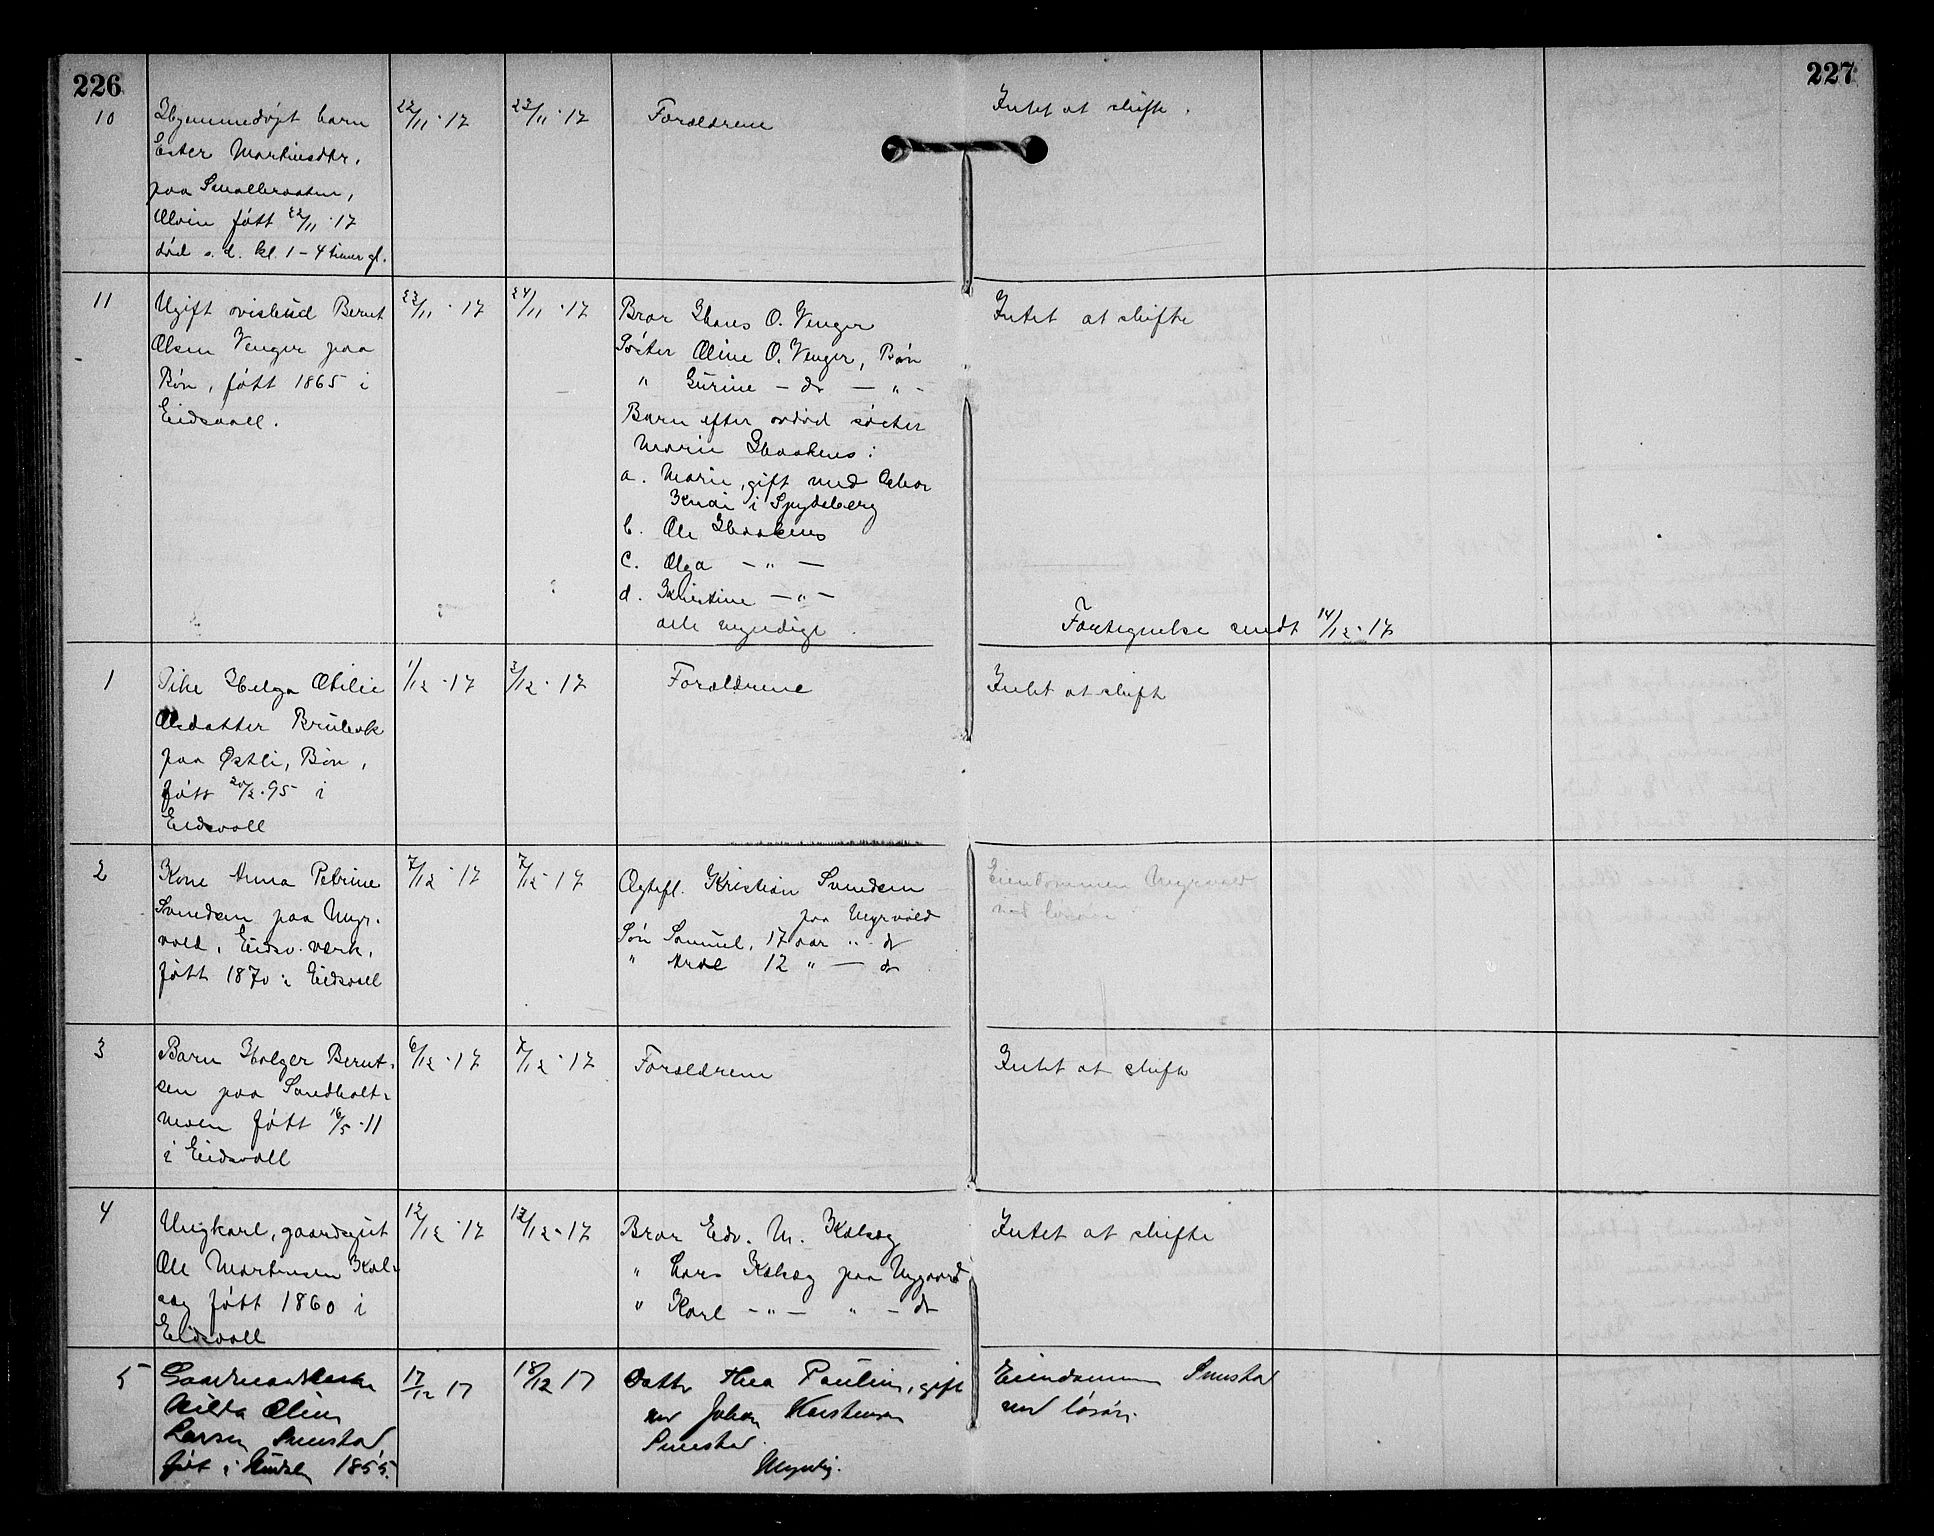 226
227
10
Hjemmedøpt barn
Ester Martinsdtr.
paa Smalbraaten,
Ølvin født 22/11·17
død s. d. kl. 1 – 4 timer gl.
22/11·17
23/11·17
Forældrene
Intet at skifte.
11
Ugift avisbud Bernt
Olsen Venger paa
Bøn, født 1865 i
Eidsvoll.
23/11·17
24/11·17
Bror Hans O. Venger
Søster Oline O. Venger, Bøn
" Gurine – do – " –
Barn efter avdød søster
Marie Haakens:
a. Marie, gift med
i Spydeberg
b. Ole Haakens
c. Olga – " –
d. Kristine – " –
alle myndige.
Intet at skifte
Fortegnelse sendt 14/12·17
1
Pike Helga Otilie
Olsdatter Brubak
paa Østli, Bøn,
født 20/2·95 i
Eidsvoll
1/12·17
3/12·17
Forældrene
Intet at skifte
2
Kone Anna Petrine
Svendsen paa Myr-
vold, Eidsv. verk,
født 1870 i Eidsvoll
7/12·17
7/12·17
Ægtef. Kristian Svendsen
paa Myrvold
Søn Samuel, 17 aar " do
" Arne 12 " – do
Eiendommen Myrvold
med løsøre
3
Barn Holger Bernt-
sen paa Sandholt-
moen født 16/5·11
i Eidsvoll
6/12·17
7/12·17
Forældrene
Intet at skifte
4
Ungkarl, gaardsgut
Ole Martinsen Kol-
sæg født 1860 i
Eidsvoll
12/12·17
13/12·17
Bror Edv. M. Kolsæg
" Lars Kolsæg paa Nygaard
" Karl – " – " – do
Intet at skifte
5
Gaardmandsenke
Hilda Oline
Larsen Smestad
født i 1855.
17/12 17
18/12 17
Datter Thea Pauline, gift
med Johan Karstensen
Smestad.
Myndig.
Eiendommen Smestad
med løsøre.